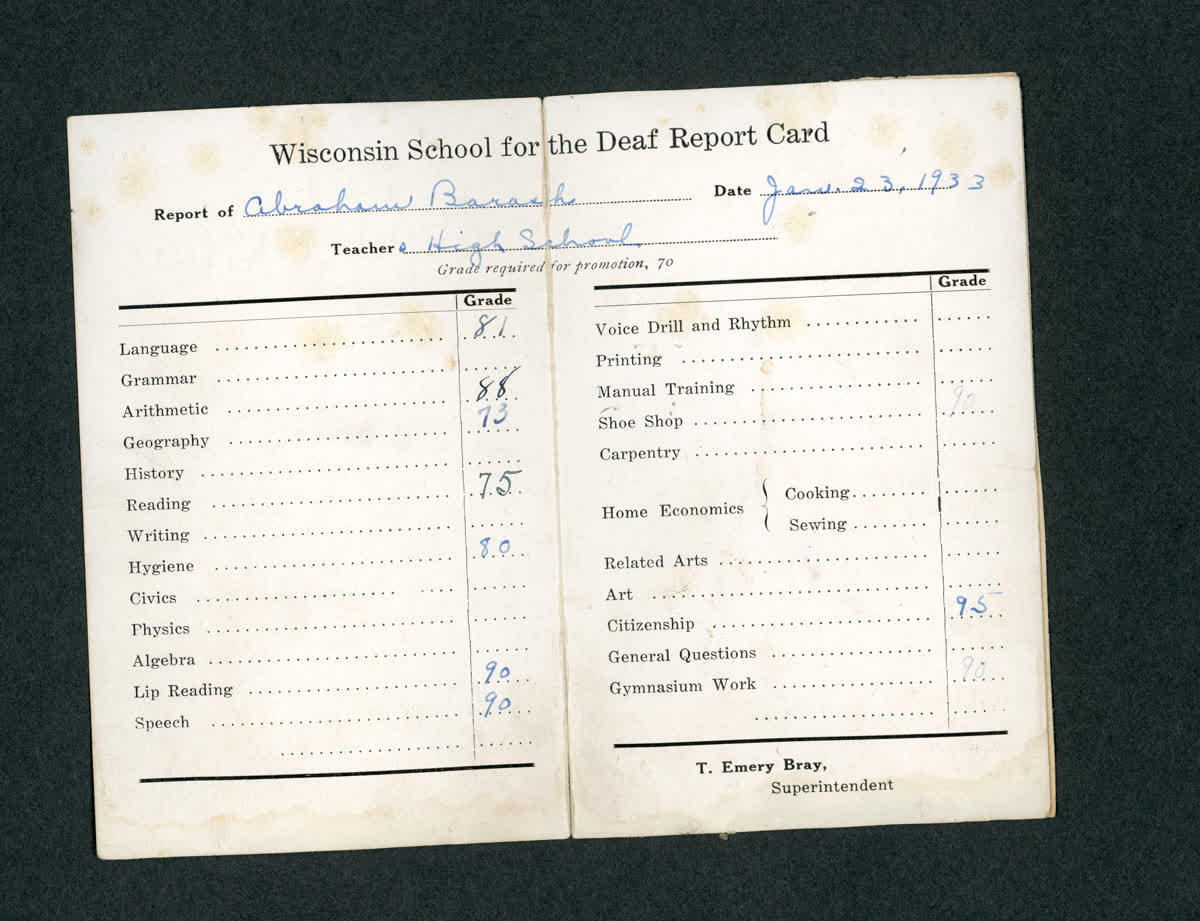 Wisconsin School for the Deaf Report Card
Report of Abraham Barash Date Jan. 23, 1933
Teachers High School
Grade required for promotion, 70
Grade
Language 81
Grammar
Arithmetic 88
Geography 73
History
Reading 75
Writing
Hygiene 80
Civics
Physics
Algebra
Lip Reading 90
Speech 90
Grade
Voice Drill and Rhythm
Printing
Manual Training
Shoe Shop 90
Carpentry
Home Economics { Cooking
Sewing
Related Arts
Art
Citizenship 95
General Questions
Gymnasium Work 90
T. Emery Bray,
Superintendent